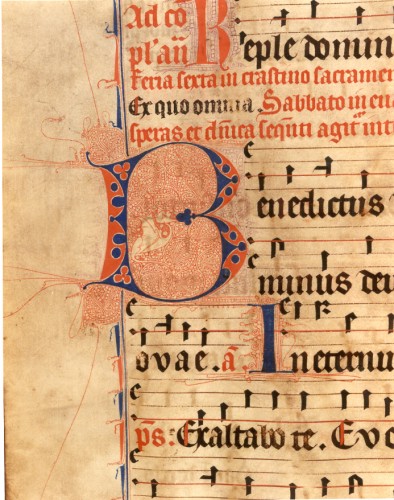 Ad cō
pl'. añ Reple domin
feria sexta in crastino sacramen
Ex quo omnia. Sabbato in
speras et dñica seqūti agit̄ int
Benedictus
minus deu
ovae. ā. In eternu
ps: Exaltabo te. Evo